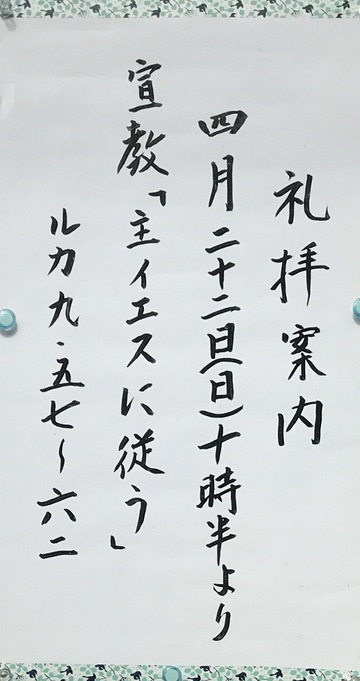 礼拝案内
四月二十二日(日)十時半より
宣教「主イエスに従う」
ルカ九・五七〜六二